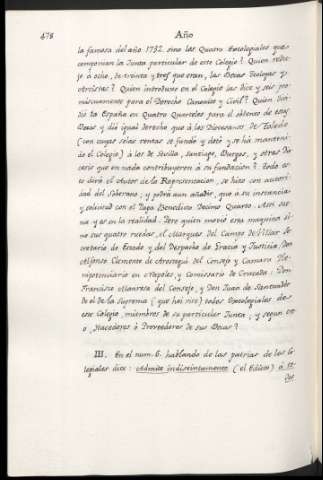 478 Año
la famosa del año 1732. sino las Quatro Excolegiales que
componian la Junta particular de este Colegio? Quien redu-
je á ocho, de treinta y tres que eran, las Becas Teologas y
Artistas? Quien introduxo en el Colegio las diez y seis pro-
miscuamente para el Derecho Canonico y Civil? Quien divi-
dió la España en Quatro Quarteles para el obtento de esas
Becas y dió igual derecho que á las Diocesanos de Toledo
(con cuyas solas rentas se fundo y dotó y se há manteni-
do el Colegio) á los de Sevilla, Santiago, Burgos, y otras Dio-
cesis que en nada contribuyeron á su fundacion? Todo es-
to dirá el Autor de la Representacion, se hizo con autori-
dad del Soberano, y podrá aun añadir, que á su instancia
y solicitud con el Papa Benedicto Decimo Quarto. Assi sue-
na y es en la realidad. Pero quien movió esta maquina si-
no sus quatro ruedas, el Marques del Campo de Villar Se-
cretario de Estado y del Despacho de Gracia y Justicia, Don
Alfonso Clemente de Arostegui del Consejo y Camara Ple-
nipotenciario en Napoles y Comissario de Cruzada: Don
Francisco Manresa del Consejo, y Don Juan de Santander
de el de la Suprema (que hoi vive) todos Excolegiales de
este Colegio, miembros de su particular Junta, y segun es-
o, Hacedores ó Proveedores de sus Becas?
III. En el num. 6. hablando de las patrias de los Co-
legiales dice: Admite indistintamente (el Edicto) á to-
dos